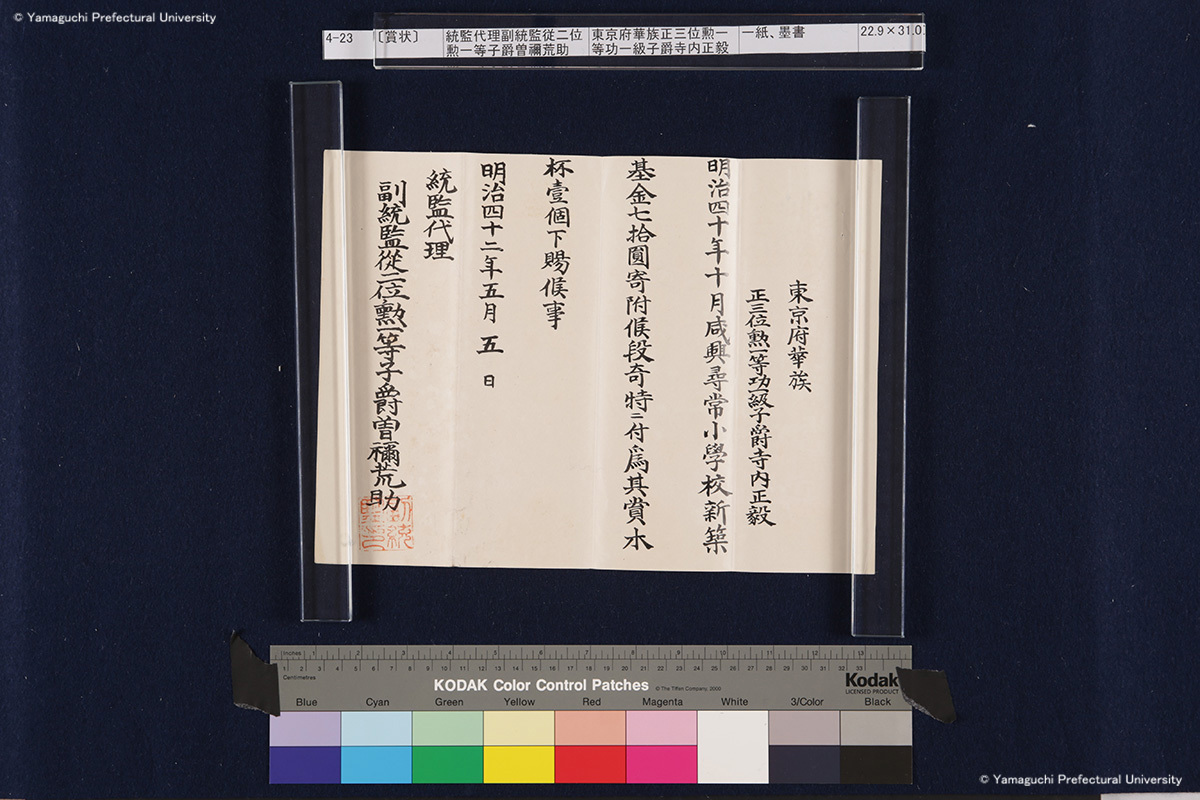 © Yamaguchi Prefectural University
4-23
〔賞状〕
統監代理副統監従二位
勲一等子爵曽禰荒助
東京府華族正三位勲一
等功一級子爵寺内正毅
一紙、墨書
22.9×31.0
東京府華族
正三位勲一等功一級子爵寺内正毅
明治四十年十月咸興尋常小學校新築
基金七拾圓寄附候段奇特ニ付爲其賞木
杯壹個下賜候事
明治四十二年五月五日
統監代理
副統監從二位勲一等子爵曽禰荒助
Inches 1 2 3 4 5 6 7 8 9 10 11 12 13
Centimetres 1 2 3 4 5 6 7 8 9 10 11 12 13 14 15 16 17 18 19 20 21 22 23 24 25 26 27 28 29 30 31 32 33
KODAK Color Control Patches © The Tiffen Company, 2000
Kodak
LICENSED PRODUCT
Blue Cyan Green Yellow Red Magenta White 3/Color Black
© Yamaguchi Prefectural University